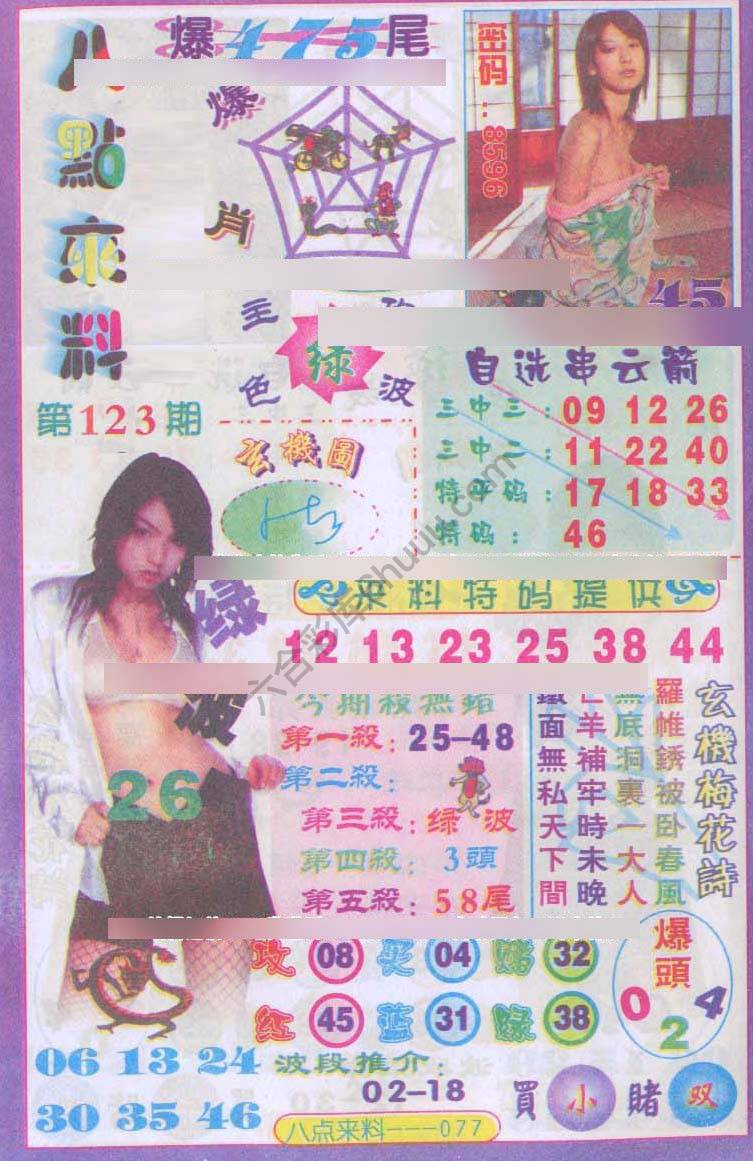 八點來料
爆475尾
爆
肖
密码:8596
45
主
攻
色
绿
波
第123期
自选串云箭
三中三:09 12 26
三中二:11 22 40
特平码:17 18 33
特码:46
玄機圖
六合彩库
huuu.com
来料特码提供
12 13 23 25 38 44
绿
波
26
今期殺無錯
第一殺:25-48
第二殺:
第三殺:绿波
第四殺:3頭
第五殺:58尾
玄機梅花詩
羅帷銹被卧春風
無底洞裏一大人
亡羊補牢時未晚
鐵面無私天下間
攻 08 买 04 赌 32
红 45 蓝 31 绿 38
爆頭
0 2 4
06 13 24
30 35 46
波段推介:
02-18
買小賭双
八点来料---077